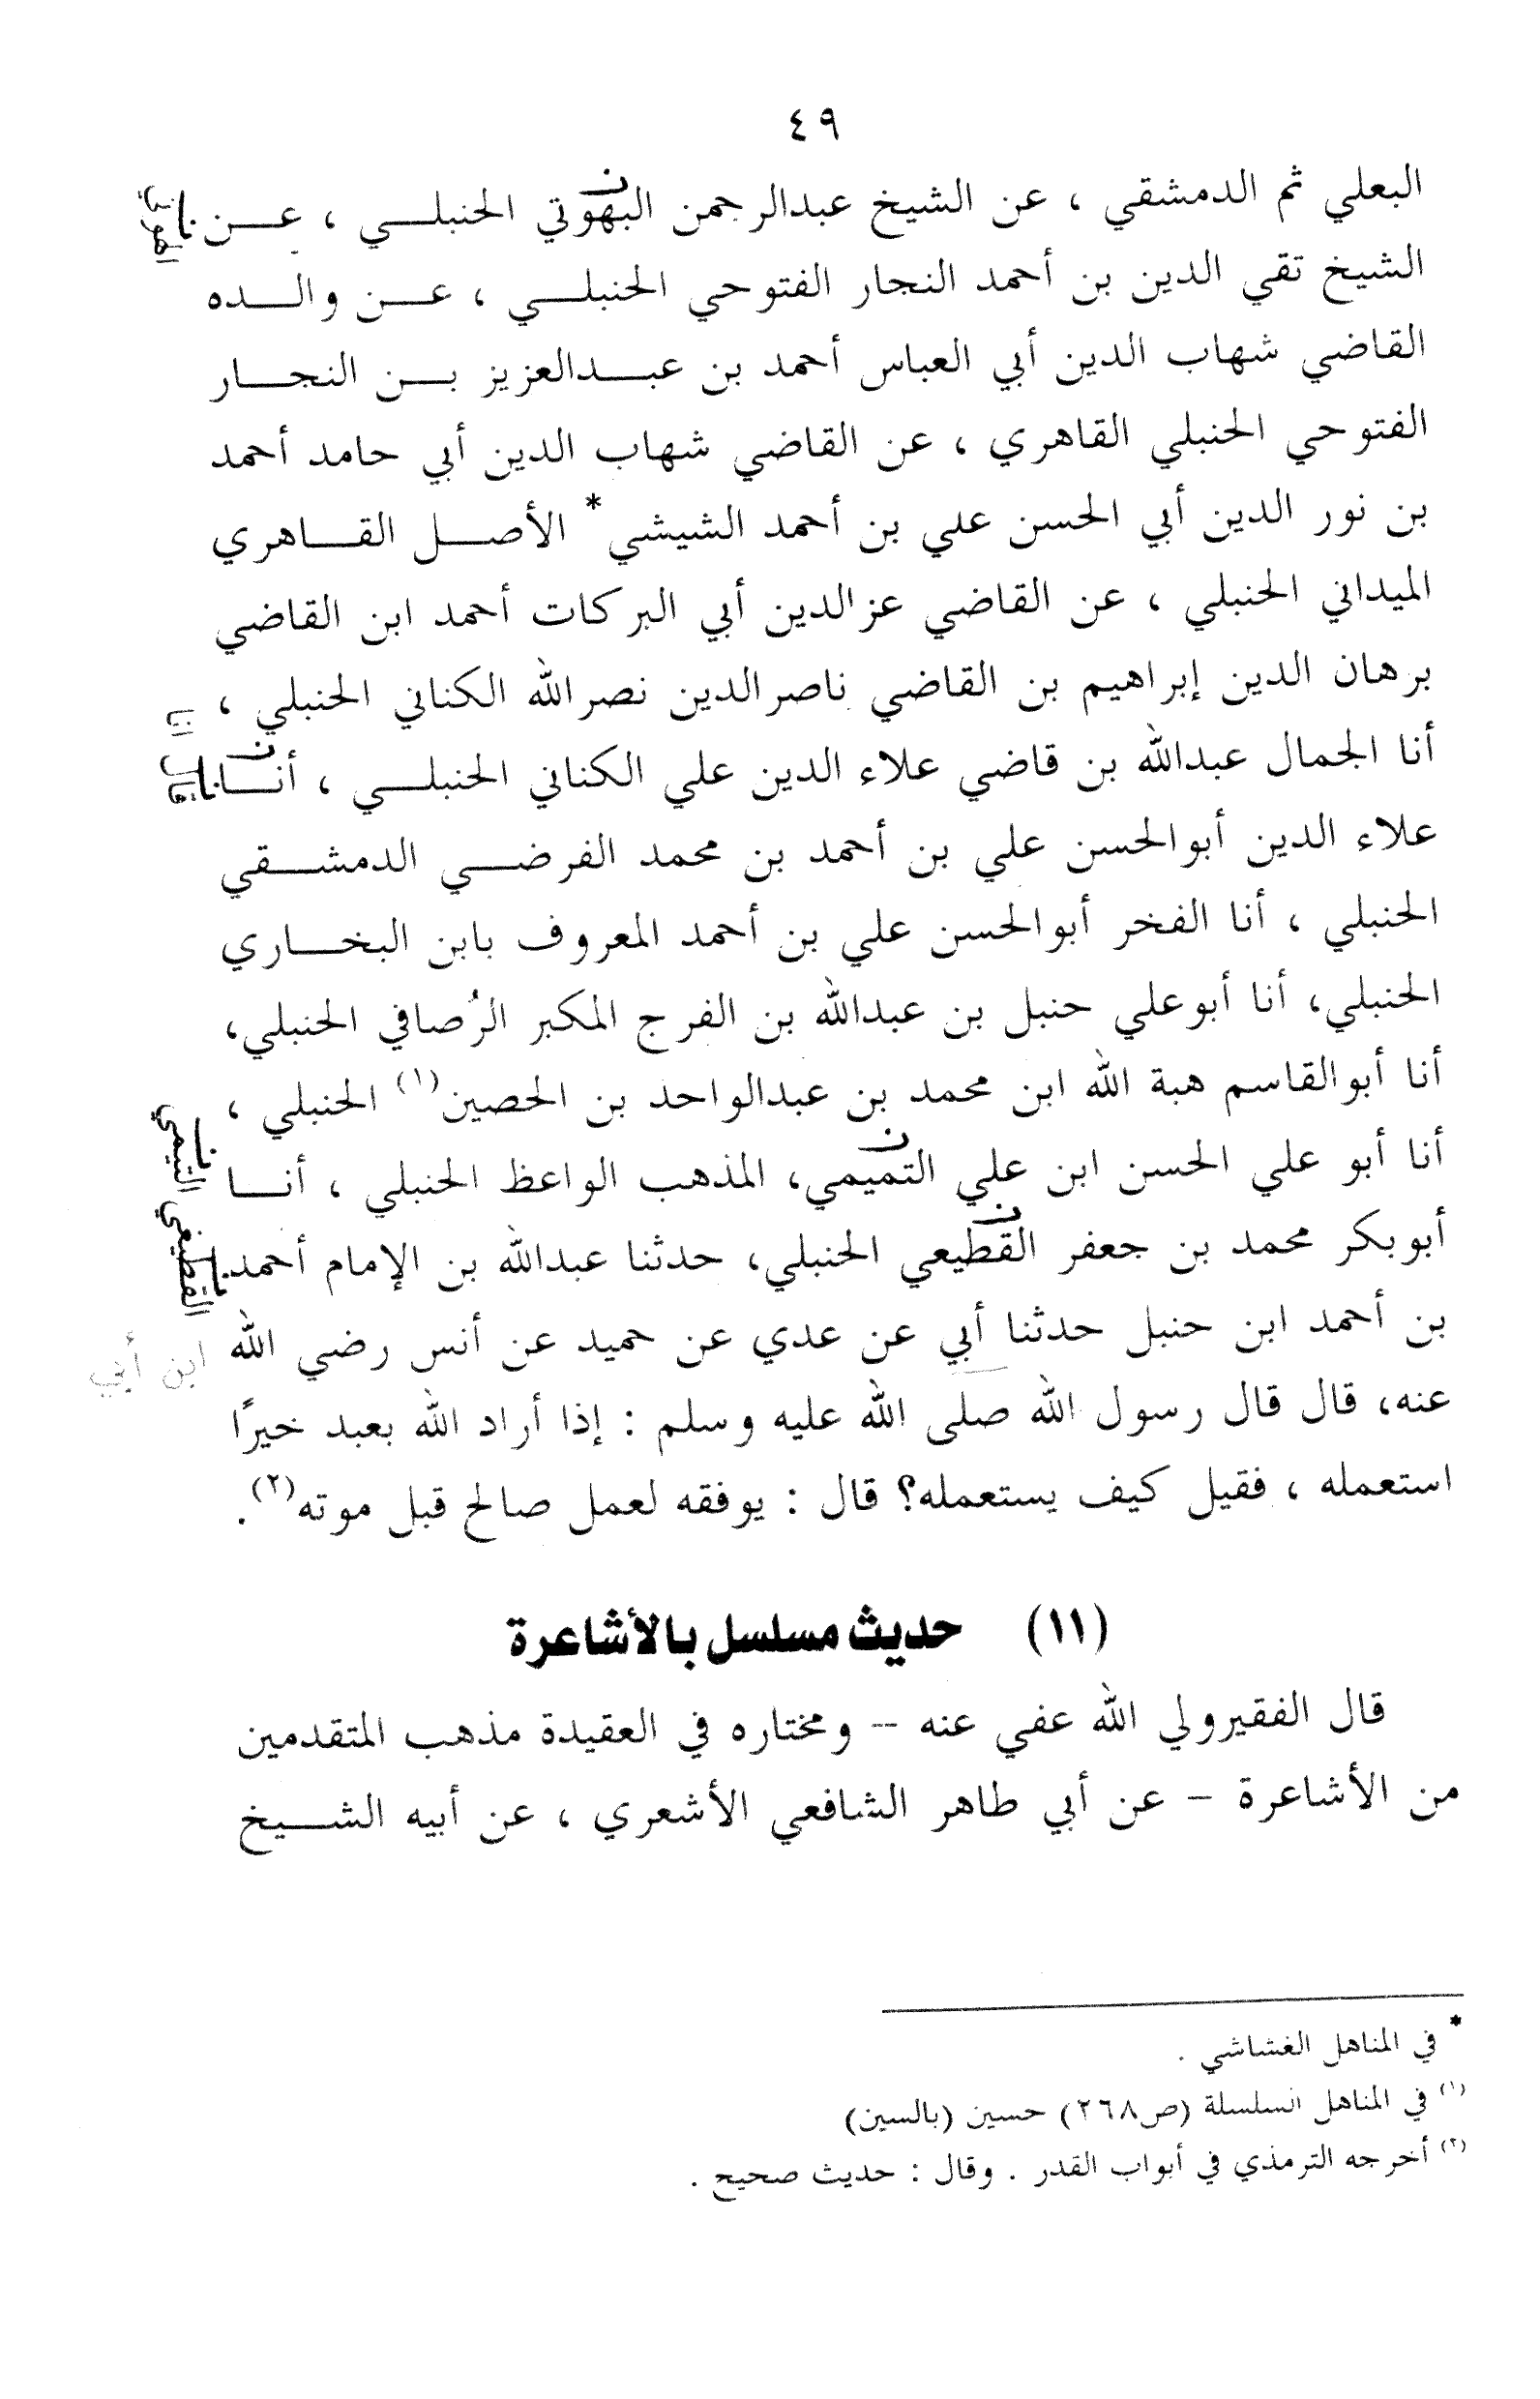 ٤٩
البعلي ثم الدمشقي ، عن الشيخ عبدالرحمن البهوتي الحنبلـــي ، عـــن
الشيخ تقي الدين بن أحمد النجار الفتوحي الحنبلـــي ، عـــن والـــده
القاضي شهاب الدين أبي العباس أحمد بن عبـــدالعزيز بـــن النجـــار
الفتوحي الحنبلي القاهري ، عن القاضي شهاب الدين أبي حامد أحمد
بن نور الدين أبي الحسن علي بن أحمد الشيشي* الأصـــل القـــاهري
الميداني الحنبلي ، عن القاضي عزالدين أبي البركات أحمد ابن القاضي
برهان الدين إبراهيم بن القاضي ناصرالدين نصرالله الكناني الحنبلي ،
أنا الجمال عبدالله بن قاضي علاء الدين علي الكناني الحنبلـــي ، أنـــا
علاء الدين أبوالحسن علي بن أحمد بن محمد الفرضـــي الدمشـــقي
الحنبلي ، أنا الفخر أبوالحسن علي بن أحمد المعروف بابن البخـــاري
الحنبلي، أنا أبوعلي حنبل بن عبدالله بن الفرج المكبر الرُصافي الحنبلي،
أنا أبوالقاسم هبة الله ابن محمد بن عبدالواحد بن الحصين(١) الحنبلي ،
أنا أبو علي الحسن ابن علي التميمي، المذهب الواعظ الحنبلي ، أنـــا
أبوبكر محمد بن جعفر القطيعي الحنبلي، حدثنا عبدالله بن الإمام أحمد
بن أحمد ابن حنبل حدثنا أبي عن عدي عن حميد عن أنس رضي الله
ابن أبي
عنه، قال قال رسول الله صلى الله عليه وسلم : إذا أراد الله بعبد خيرًا
استعمله ، فقيل كيف يستعمله؟ قال : يوفقه لعمل صالح قبل موته(٢).
(١١) حديث مسلسل بالأشاعرة
قال الفقيرولي الله عفي عنه – ومختاره في العقيدة مذهب المتقدمين
من الأشاعرة – عن أبي طاهر الشافعي الأشعري ، عن أبيه الشـــيخ
* في المناهل الغشاشي .
(١) في المناهل السلسلة (ص٢٦٨) حسين (بالسين)
(٢) أخرجه الترمذي في أبواب القدر . وقال : حديث صحيح .